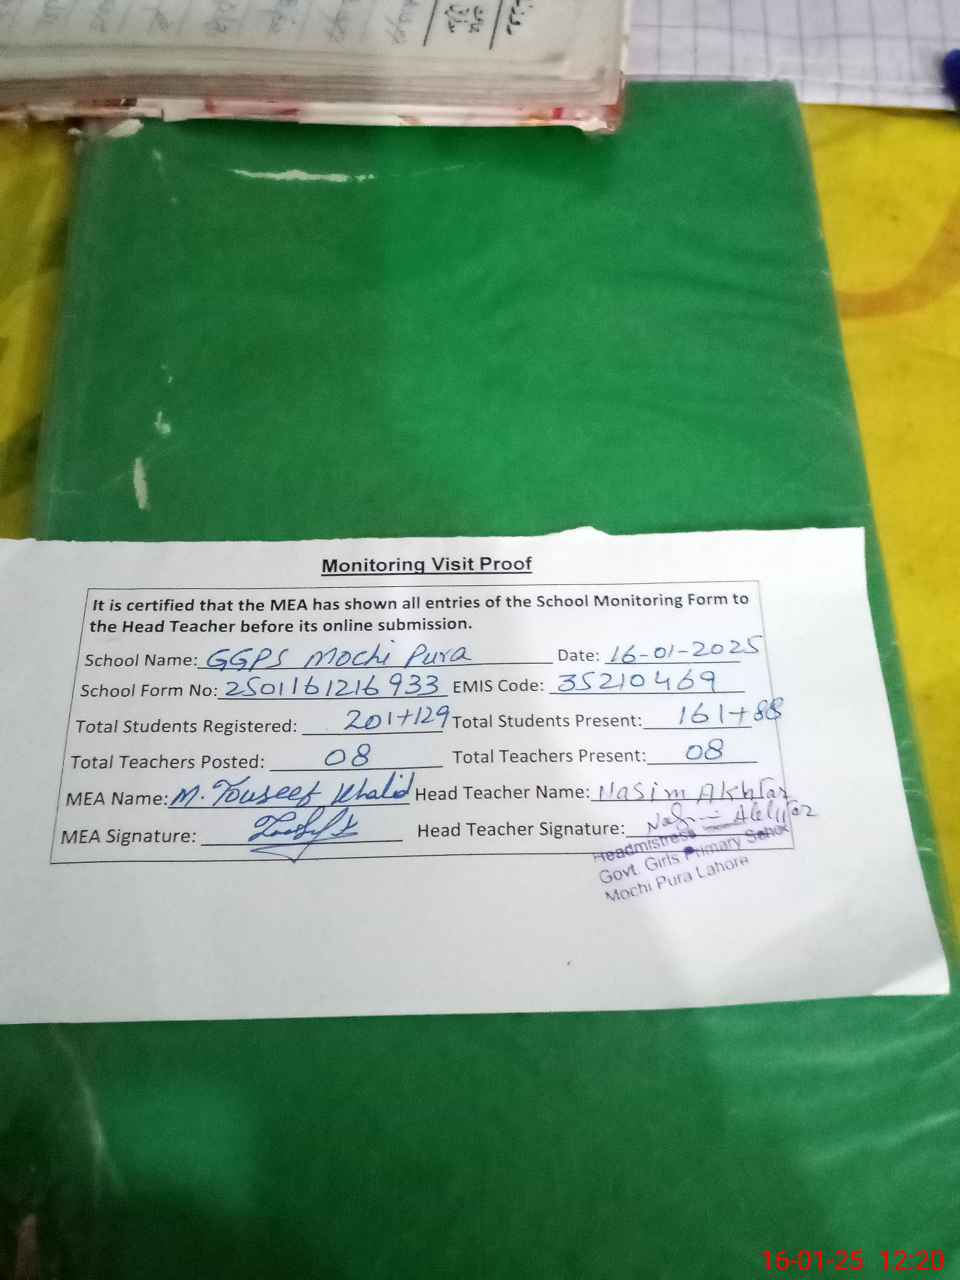 Monitoring Visit Proof
It is certified that the MEA has shown all entries of the School Monitoring Form to
the Head Teacher before its online submission.
School Name: GGPS Mochi Pura Date: 16-01-2025
School Form No: 2501161216933 EMIS Code: 35210469
Total Students Registered: 201+129 Total Students Present: 161+88
Total Teachers Posted: 08 Total Teachers Present: 08
MEA Name: M. Touseef Khalid Head Teacher Name: Nasim Akhtar
MEA Signature: Head Teacher Signature:
Headmistress
Govt. Girls Primary School
Mochi Pura Lahore
16-01-25 12:20